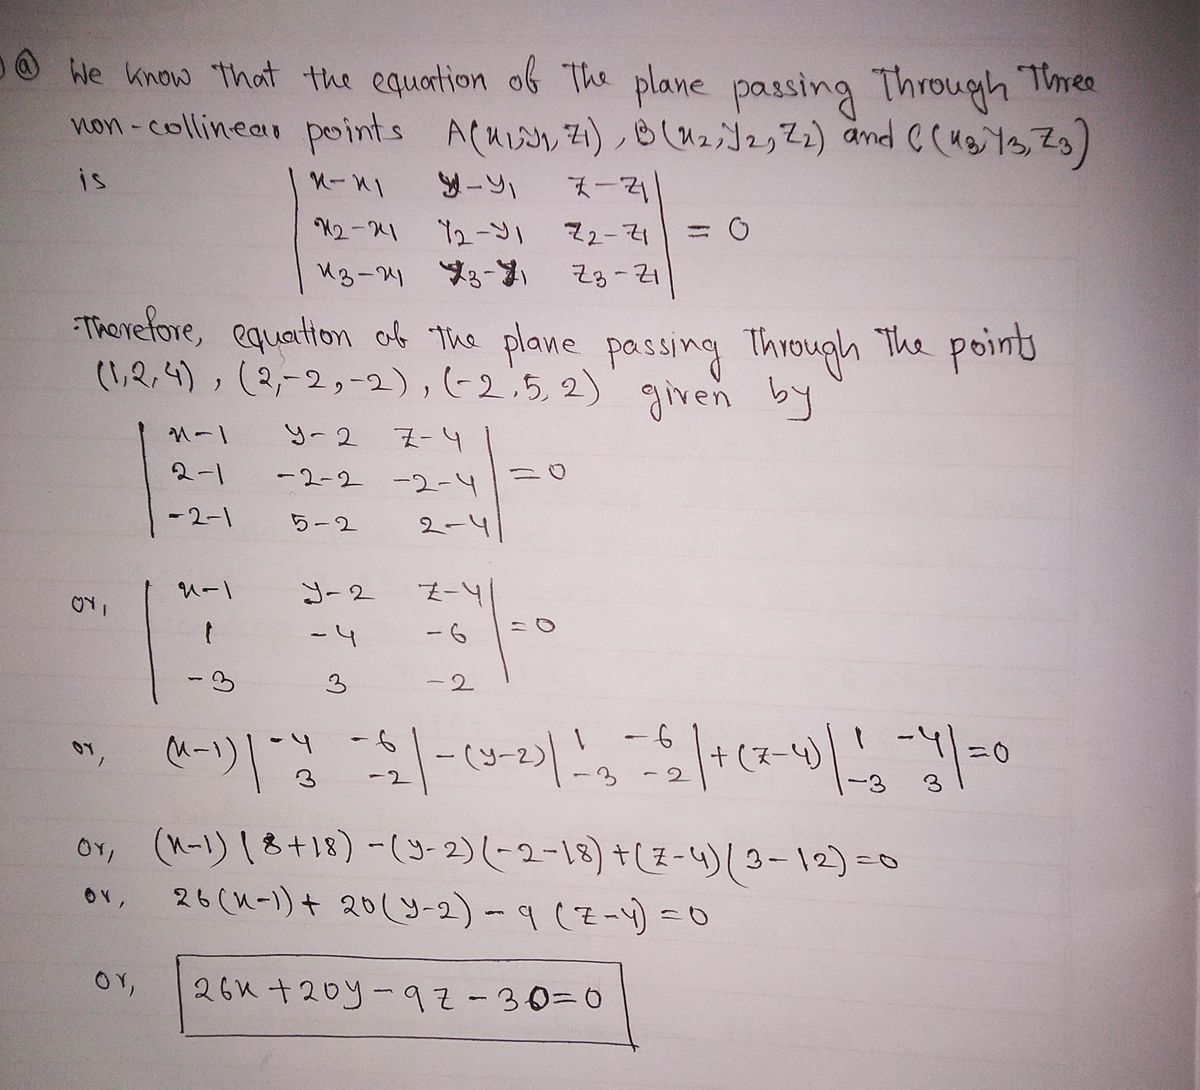 ⓐ We know that the equation of the plane passing through three
non-collinear points A(x₁,y₁,z₁), B(x₂,y₂,z₂) and C(x₃,y₃,z₃)
is | x-x₁ y-y₁ z-z₁ |
| x₂-x₁ y₂-y₁ z₂-z₁ | = 0
| x₃-x₁ y₃-y₁ z₃-z₁ |
Therefore, equation of the plane passing through the points
(1,2,4), (2,-2,-2), (-2,5,2) given by
| x-1 y-2 z-4 |
| 2-1 -2-2 -2-4 | =0
| -2-1 5-2 2-4 |
or, | x-1 y-2 z-4 |
| 1 -4 -6 | =0
| -3 3 -2 |
or, (x-1) | -4 -6 | -(y-2) | 1 -6 | +(z-4) | 1 -4 | =0
| 3 -2 | | -3 -2 | | -3 3 |
or, (x-1)(8+18) -(y-2)(-2-18)+(z-4)(3-12)=0
or, 26(x-1)+ 20(y-2) - 9 (z-4) =0
or, 26x+20y-9z-30=0